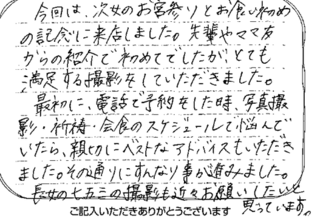 今回は、次女のお宮参りとお食い初め
の記念に来店しました。先輩やママ友
からの紹介で初めてでしたが、とても
満足する撮影をしていただきました。
最初に、電話で予約をした時、写真撮
影・祈祷・会食のスケジュールで悩んで
いたら、親切にベストなアドバイスもいただき
ました。その通りにすんなり事が進みました。
長女の七五三の撮影も近々お願いしたいと
思っています。
ご記入いただきありがとうございます